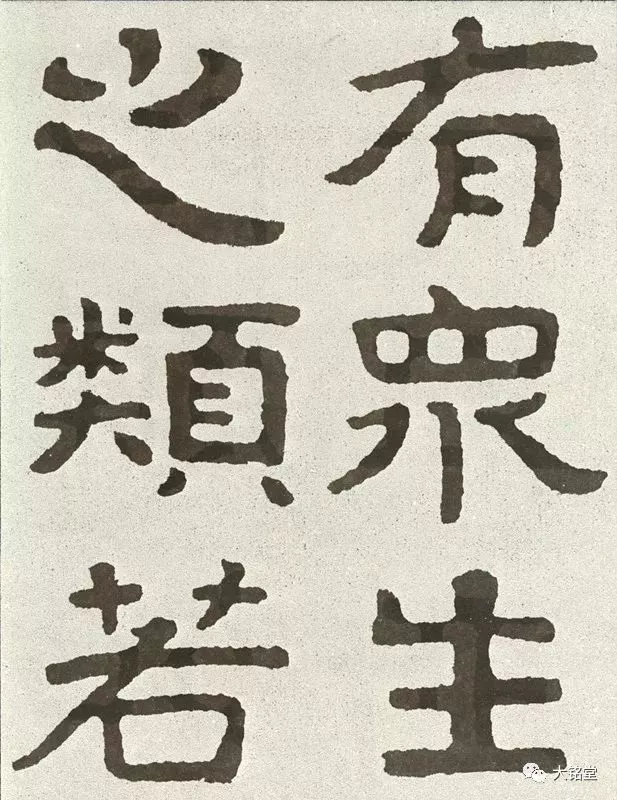 有眾生
之類若
大铭堂